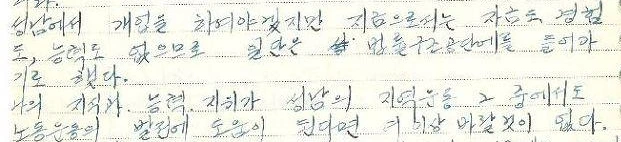 성남에서 개업을 하여야겠지만 지금으로서는 자금도, 경험
도, 능력도 없으므로 일단은 법률구조공단에를 들어가
기로 했다.
나의 지식과 능력, 지위가 성남의 지역운동 그 중에서도
노동운동의 발전에 도움이 된다면 더 이상 바랄것이 없다.